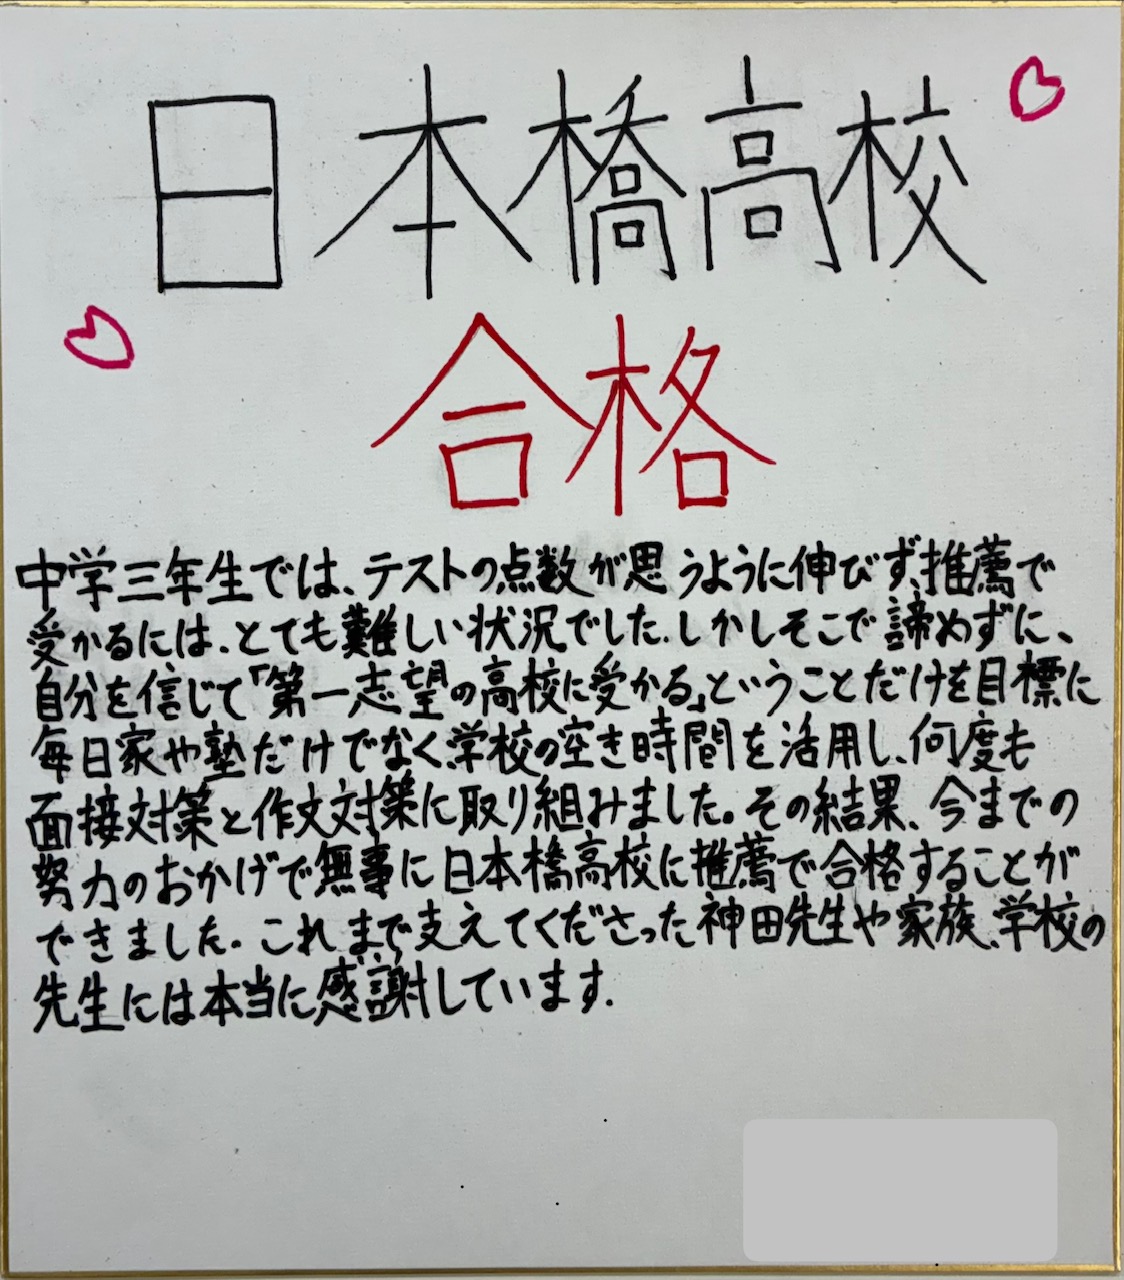 日本橋高校
合格
中学三年生では、テストの点数が思うように伸びず、推薦で
受かるには、とても難しい状況でした。しかしそこで諦めずに、
自分を信じて「第一志望の高校に受かる」ということだけを目標に
毎日家や塾だけでなく、学校の空き時間を活用し、何度も
面接対策と作文対策に取り組みました。その結果、今までの
努力のおかげで無事に日本橋高校に推薦で合格することが
できました。これまで支えてくださった神田先生や家族、学校の
先生には本当に感謝しています。